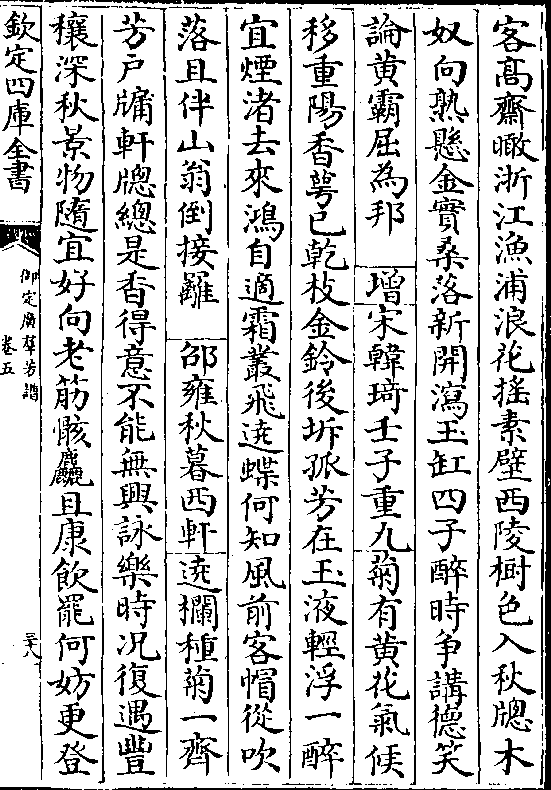 客髙齋瞰浙江漁浦浪花揺素壁西陵樹色入秋牕木
奴向熟懸金實桑落新開瀉玉缸四子醉時争講德笑
論黄霸屈為邦 增宋韓琦壬子重九菊有黄花氣候
移重陽香蕚已乾枝金鈴後坼孤芳在玉液輕浮一醉
宜煙渚去來鴻自適霜叢飛遶蝶何知風前客帽從吹
落且伴山翁倒接䍦 邵雍秋暮西軒 遶欄種菊一齊
芳戸牖軒牕總是香得意不能無興詠樂時况復遇豐
穰深秋景物隨宜好向老筋骸麤且康飲罷何妨更登
欽定四庫全書
御定廣羣芳譜
卷五
三十八